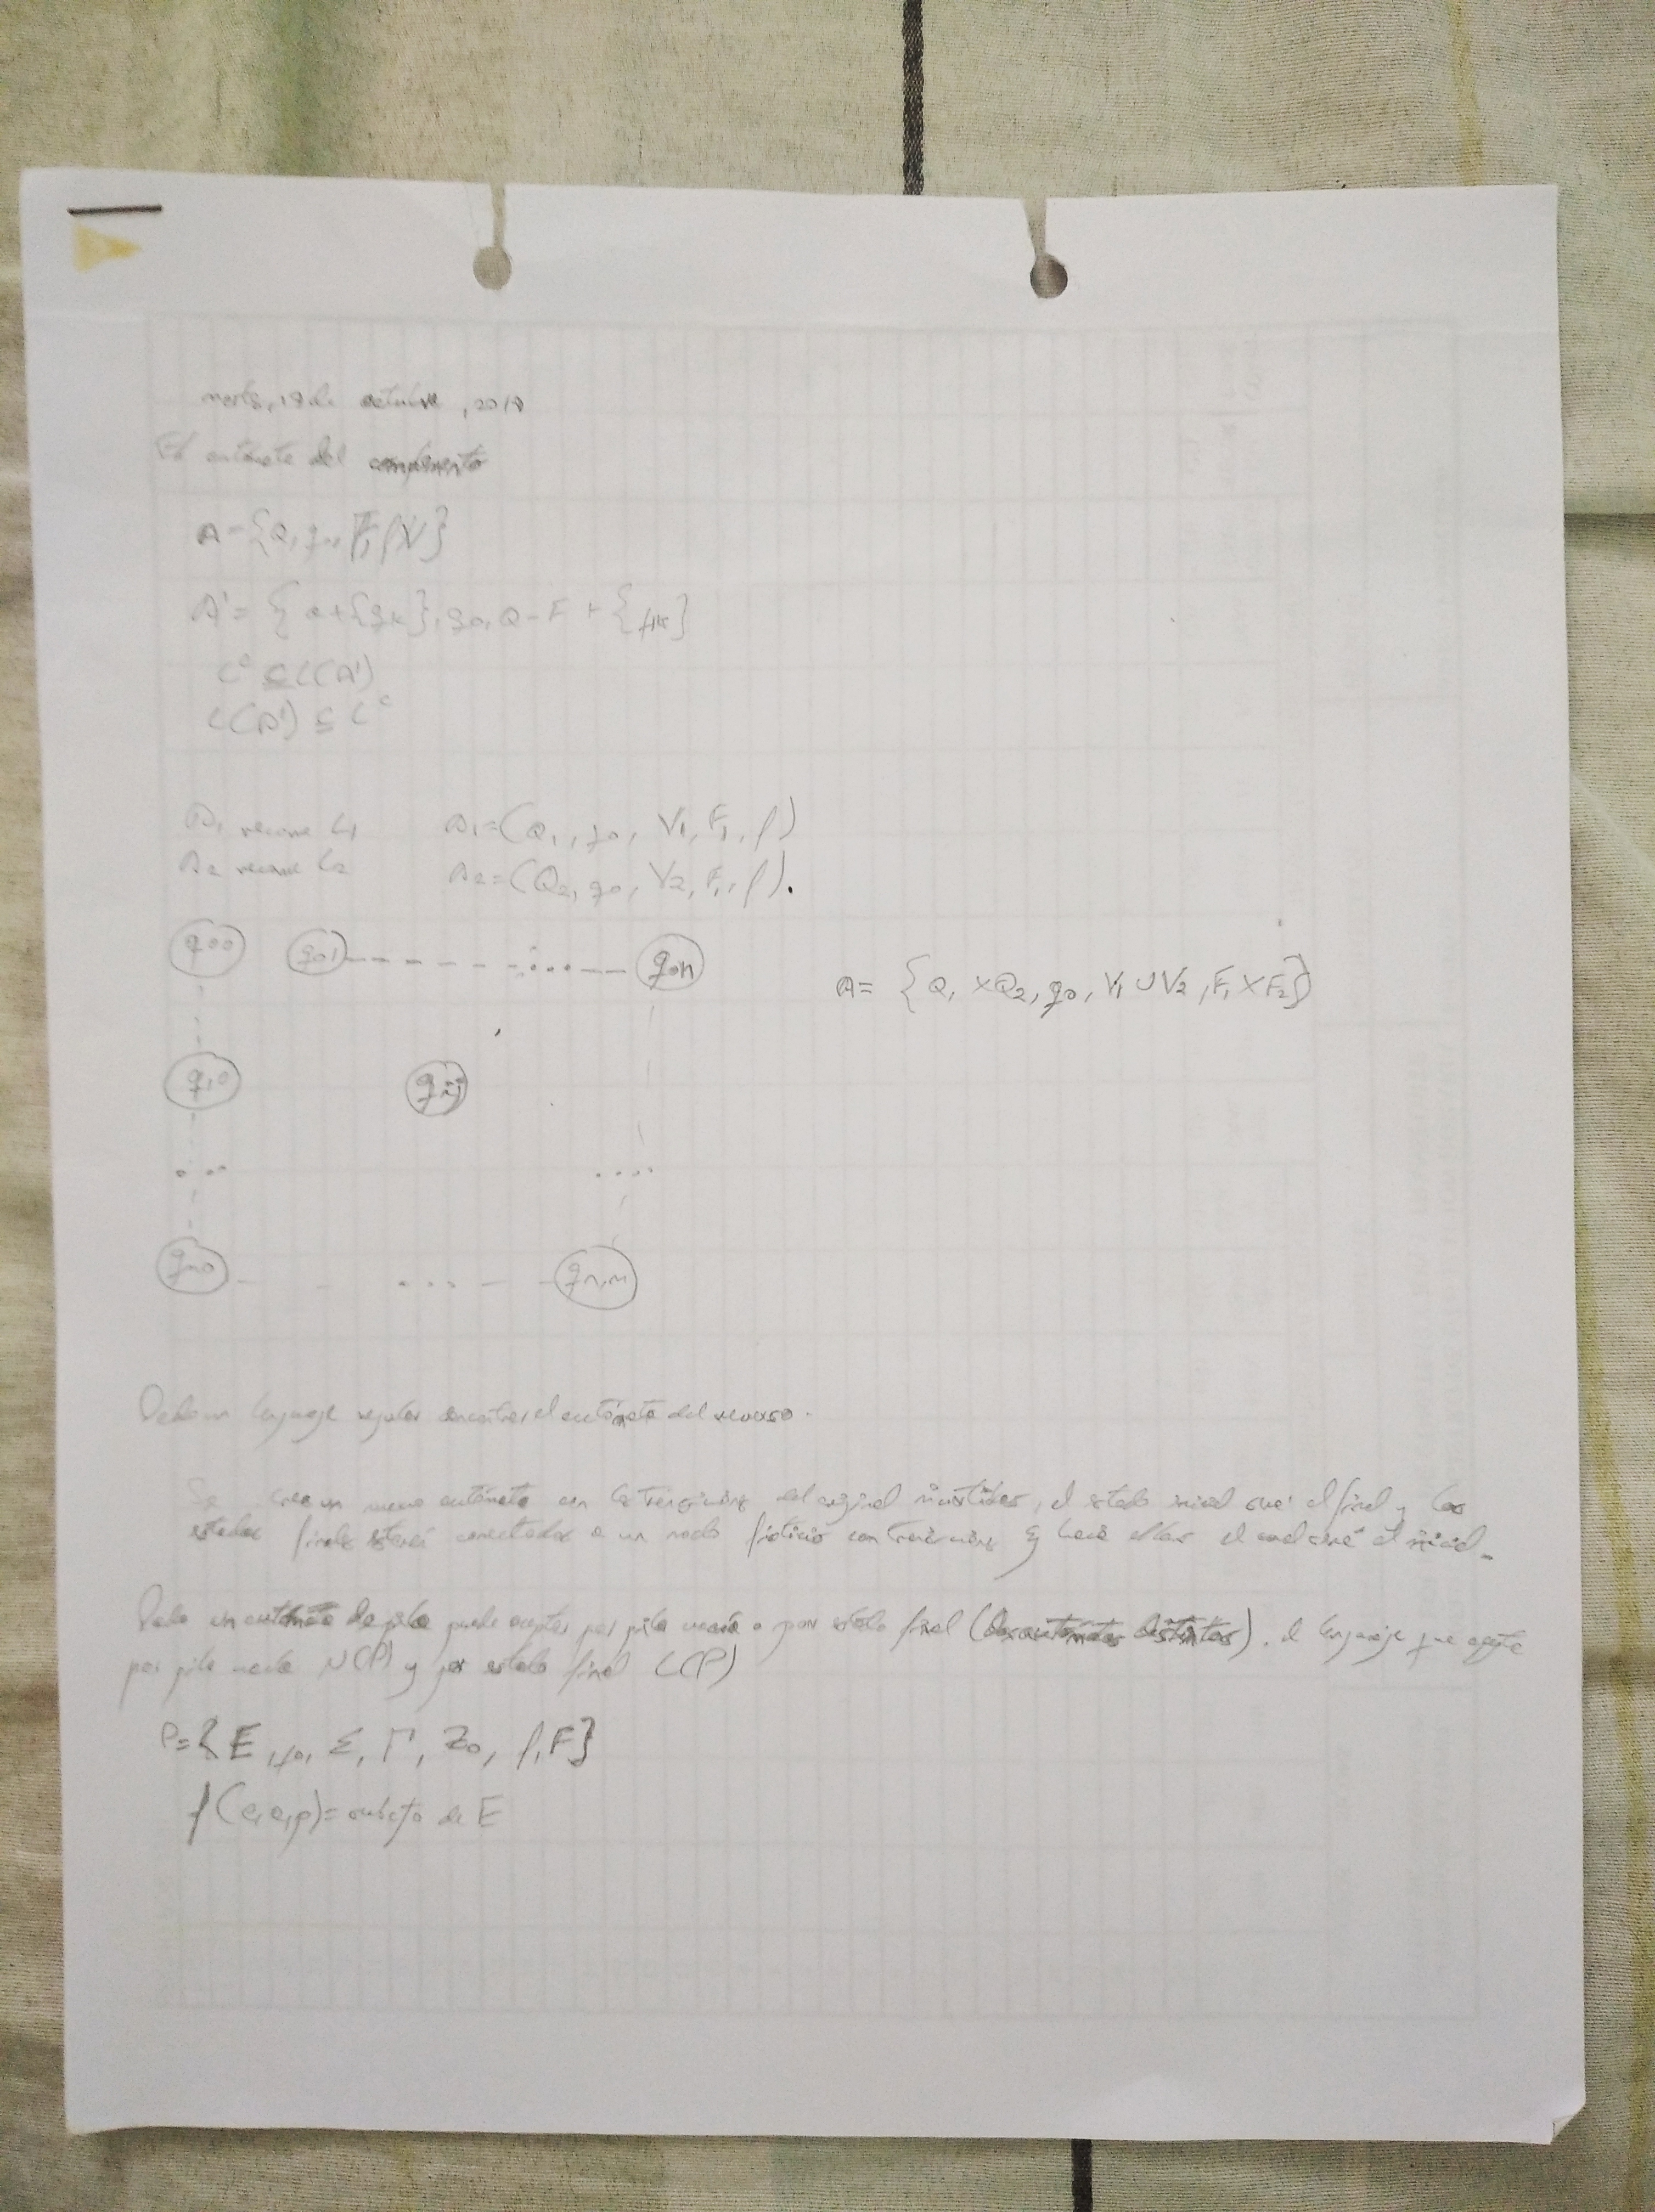 martes, 19 de octubre, 2018
El autómata del complemento
A = {Q, q0, F, f, V}
A' = {Q + {qk}, q0, Q - F + {fk}
L^c ⊆ L(A')
L(A') ⊆ L^c
A1 reconoce L1 A1 = (Q1, q0, V1, F1, f)
A2 reconoce L2 A2 = (Q2, q0, V2, F1, f).
q00 q01 ---- ...-- q0n
A = {Q1 × Q2, q0, V1 ∪ V2, F1 × F2}
q10 qij
... ....
qn0 - - ... - - qn,m
Dado un lenguaje regular encontrar el autómata del reverso.
Se crea un nuevo autómata con las transiciones del original invertidas, el estado inicial será el final y los
estados finales estará conectados a un nodo ficticio con transiciones ε hacia ellos el cual será el inicial.
Dado un autómata de pila puede aceptar por pila vacía o por estado final (dos autómatas distintos). el lenguaje que acepta
por pila vacía N(P) y por estado final L(P)
P = {E, q0, Σ, Γ, Z0, f, F}
f(e, a, p) = subcjto de E